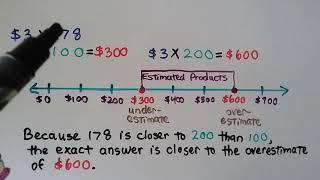 $3 × 178
100 = $300 $3 × 200 = $600
Estimated Products
$0 $100 $200 $300 $400 $500 $600 $700
under- over-
estimate estimate
Because 178 is closer to 200 than 100,
the exact answer is closer to the overestimate
of $600.